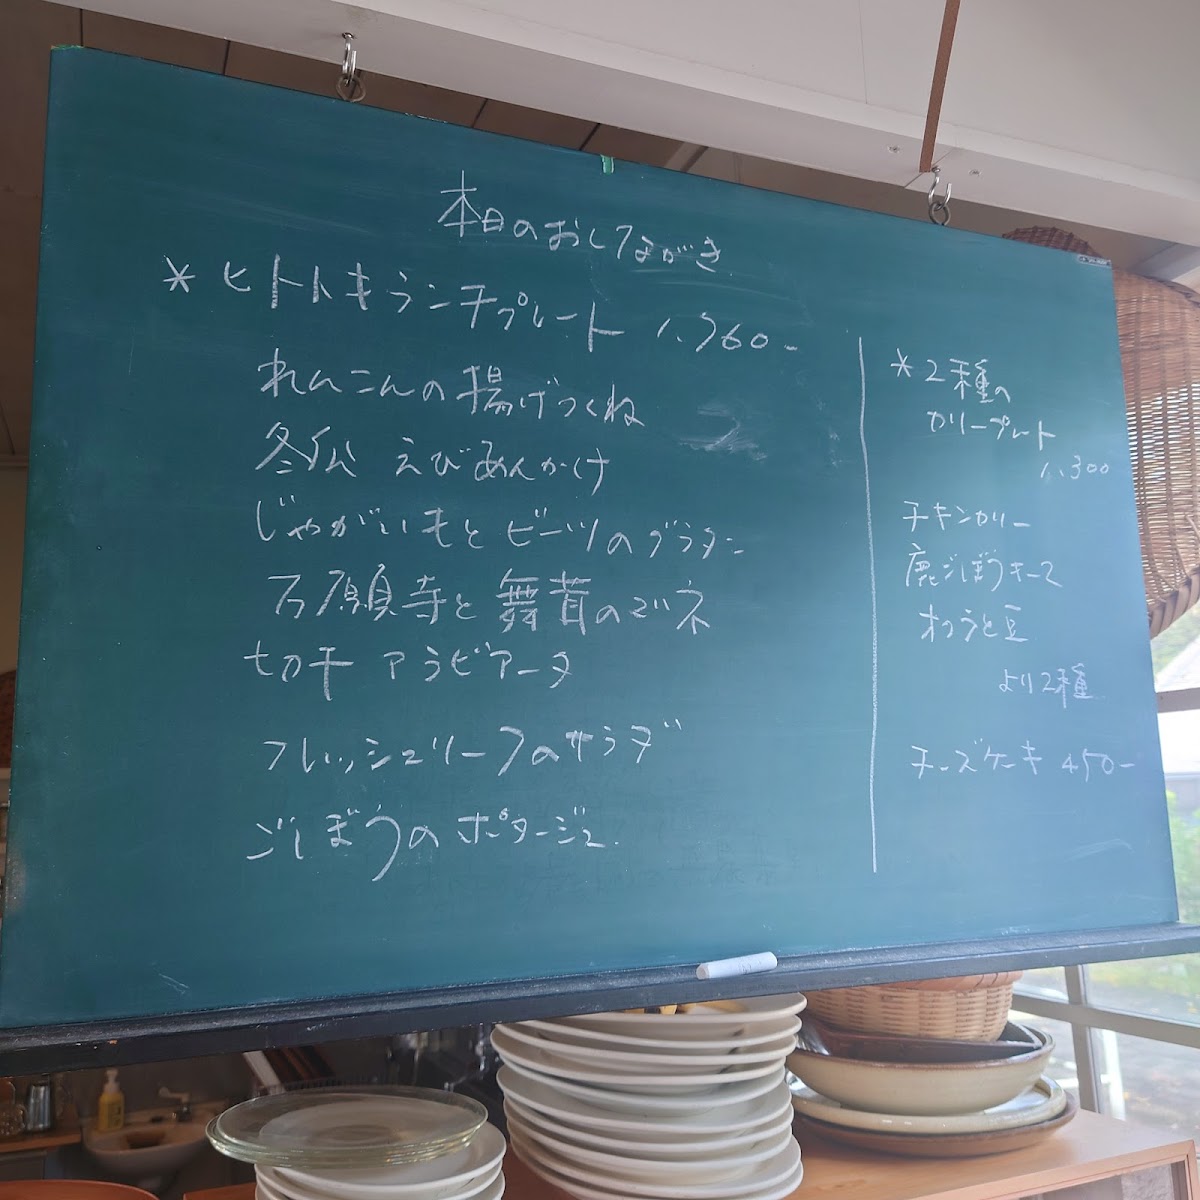 本日のおしながき
* ヒトトキランチプレート 1,760-
れんこんの揚げつくね
冬瓜 えびあんかけ
じゃがいもとビーツのグラタン
万願寺と舞茸のマリネ
切干 アラビアータ
フレッシュリーフのサラダ
ごぼうのポタージュ
* 2種の
カリープレート
1,300
チキンカリー
鹿ごぼうキーマ
オクラと豆
より2種
チーズケーキ 450-